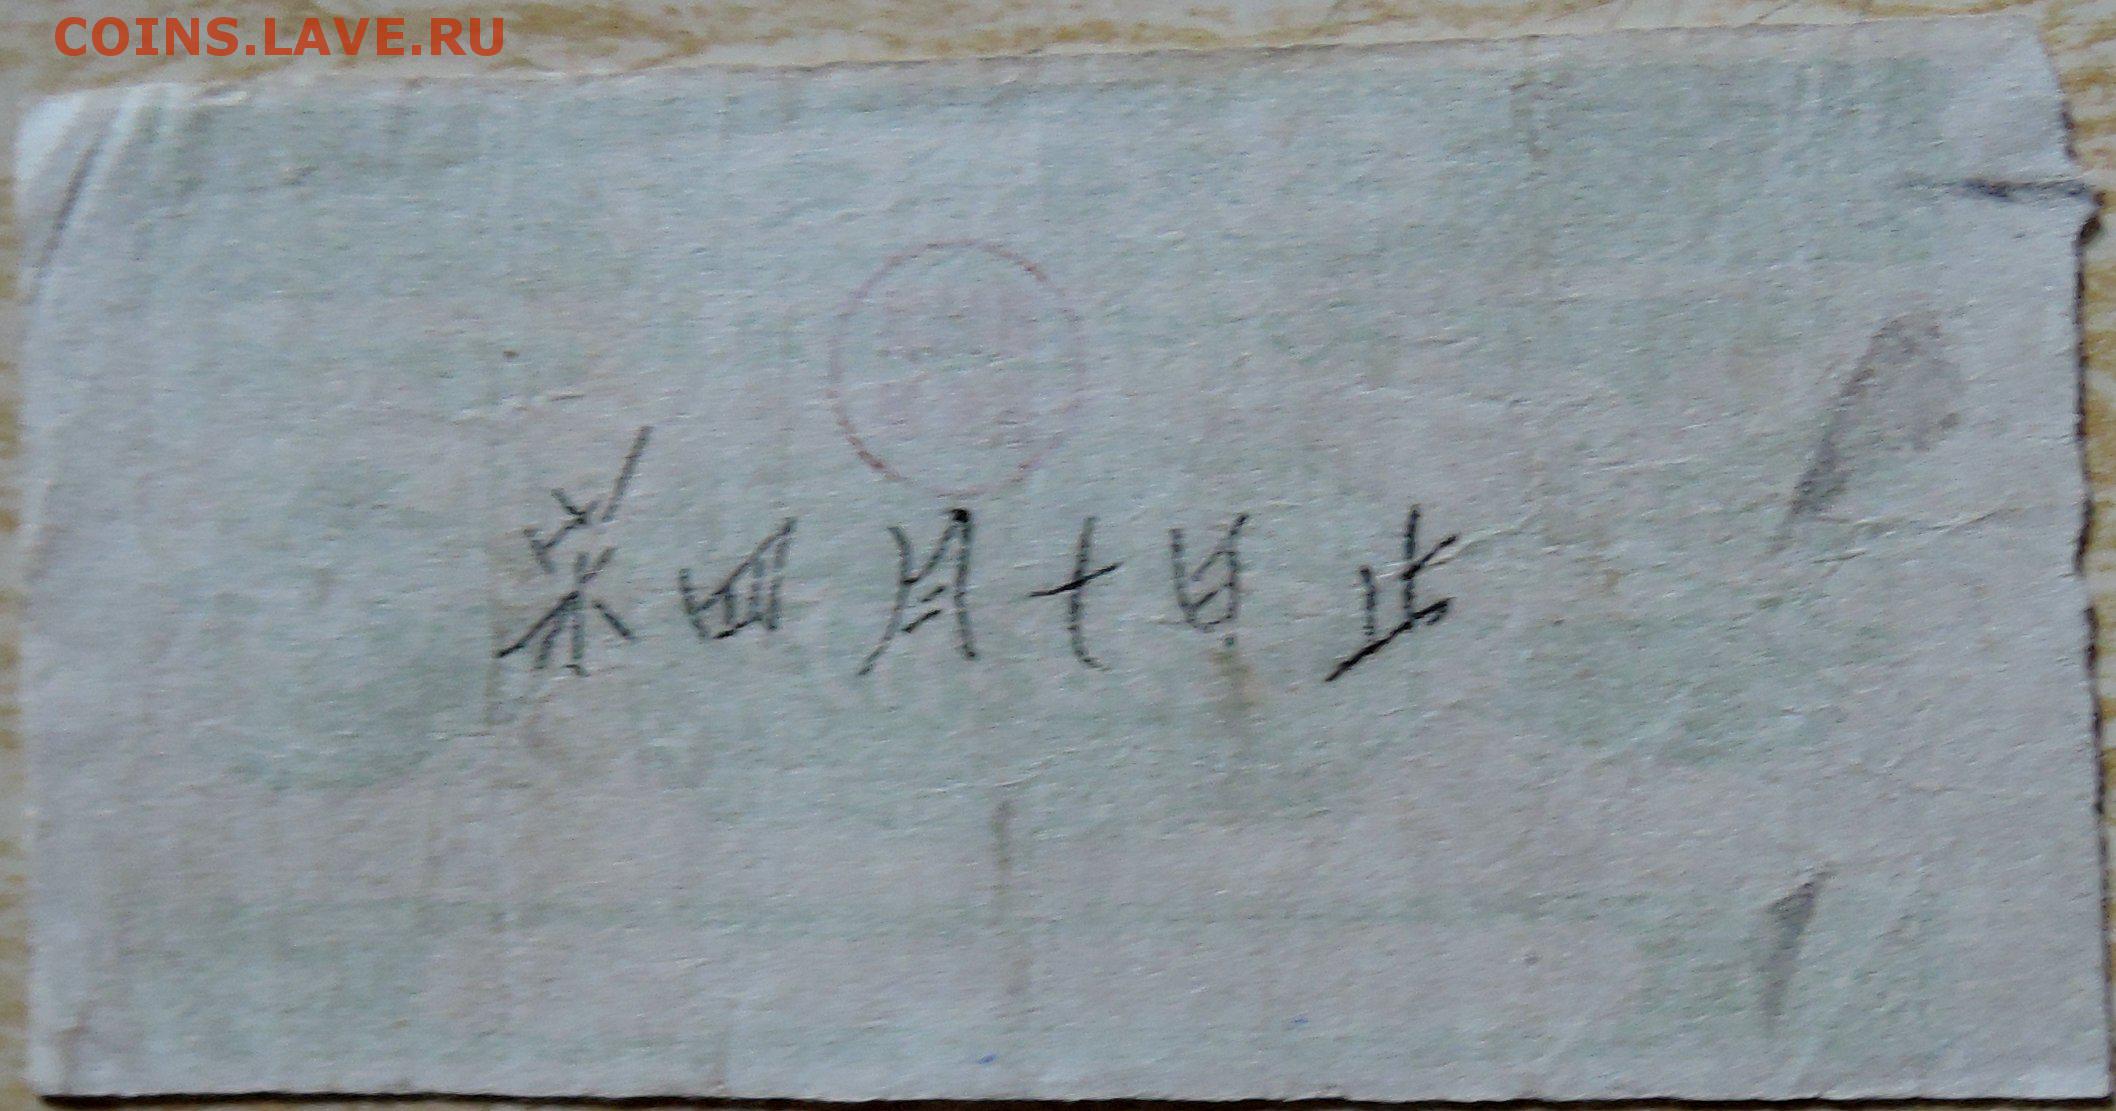 COINS.LAVE.RU
四月十日止